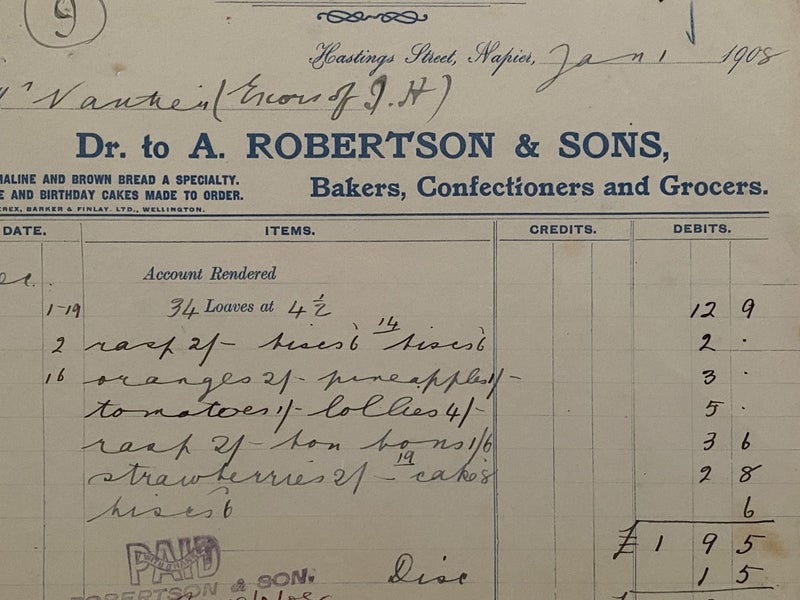 9
Hastings Street, Napier, Jan 1 1908
(Exors of J. H)
Dr. to A. ROBERTSON & SONS,
MALINE AND BROWN BREAD A SPECIALTY.
E AND BIRTHDAY CAKES MADE TO ORDER.
Bakers, Confectioners and Grocers.
REX, BARKER & FINLAY, LTD., WELLINGTON.
DATE. ITEMS. CREDITS. DEBITS.
Account Rendered
1-19 34 Loaves at 4½ 12 9
2 rasp 2/- biscs 6 14 biscs 6 2 .
16 oranges 2/- pineapples 1/- 3 .
tomatoes 1/- lollies 4/- 5 .
rasp 2/- bon bons 1/6 3 6
strawberries 2/- 19 cakes 8 2 8
biscs 6 6
£ 1 9 5
PAID
WITH THANKS
Disc 1 5
ROBERTSON & SON.